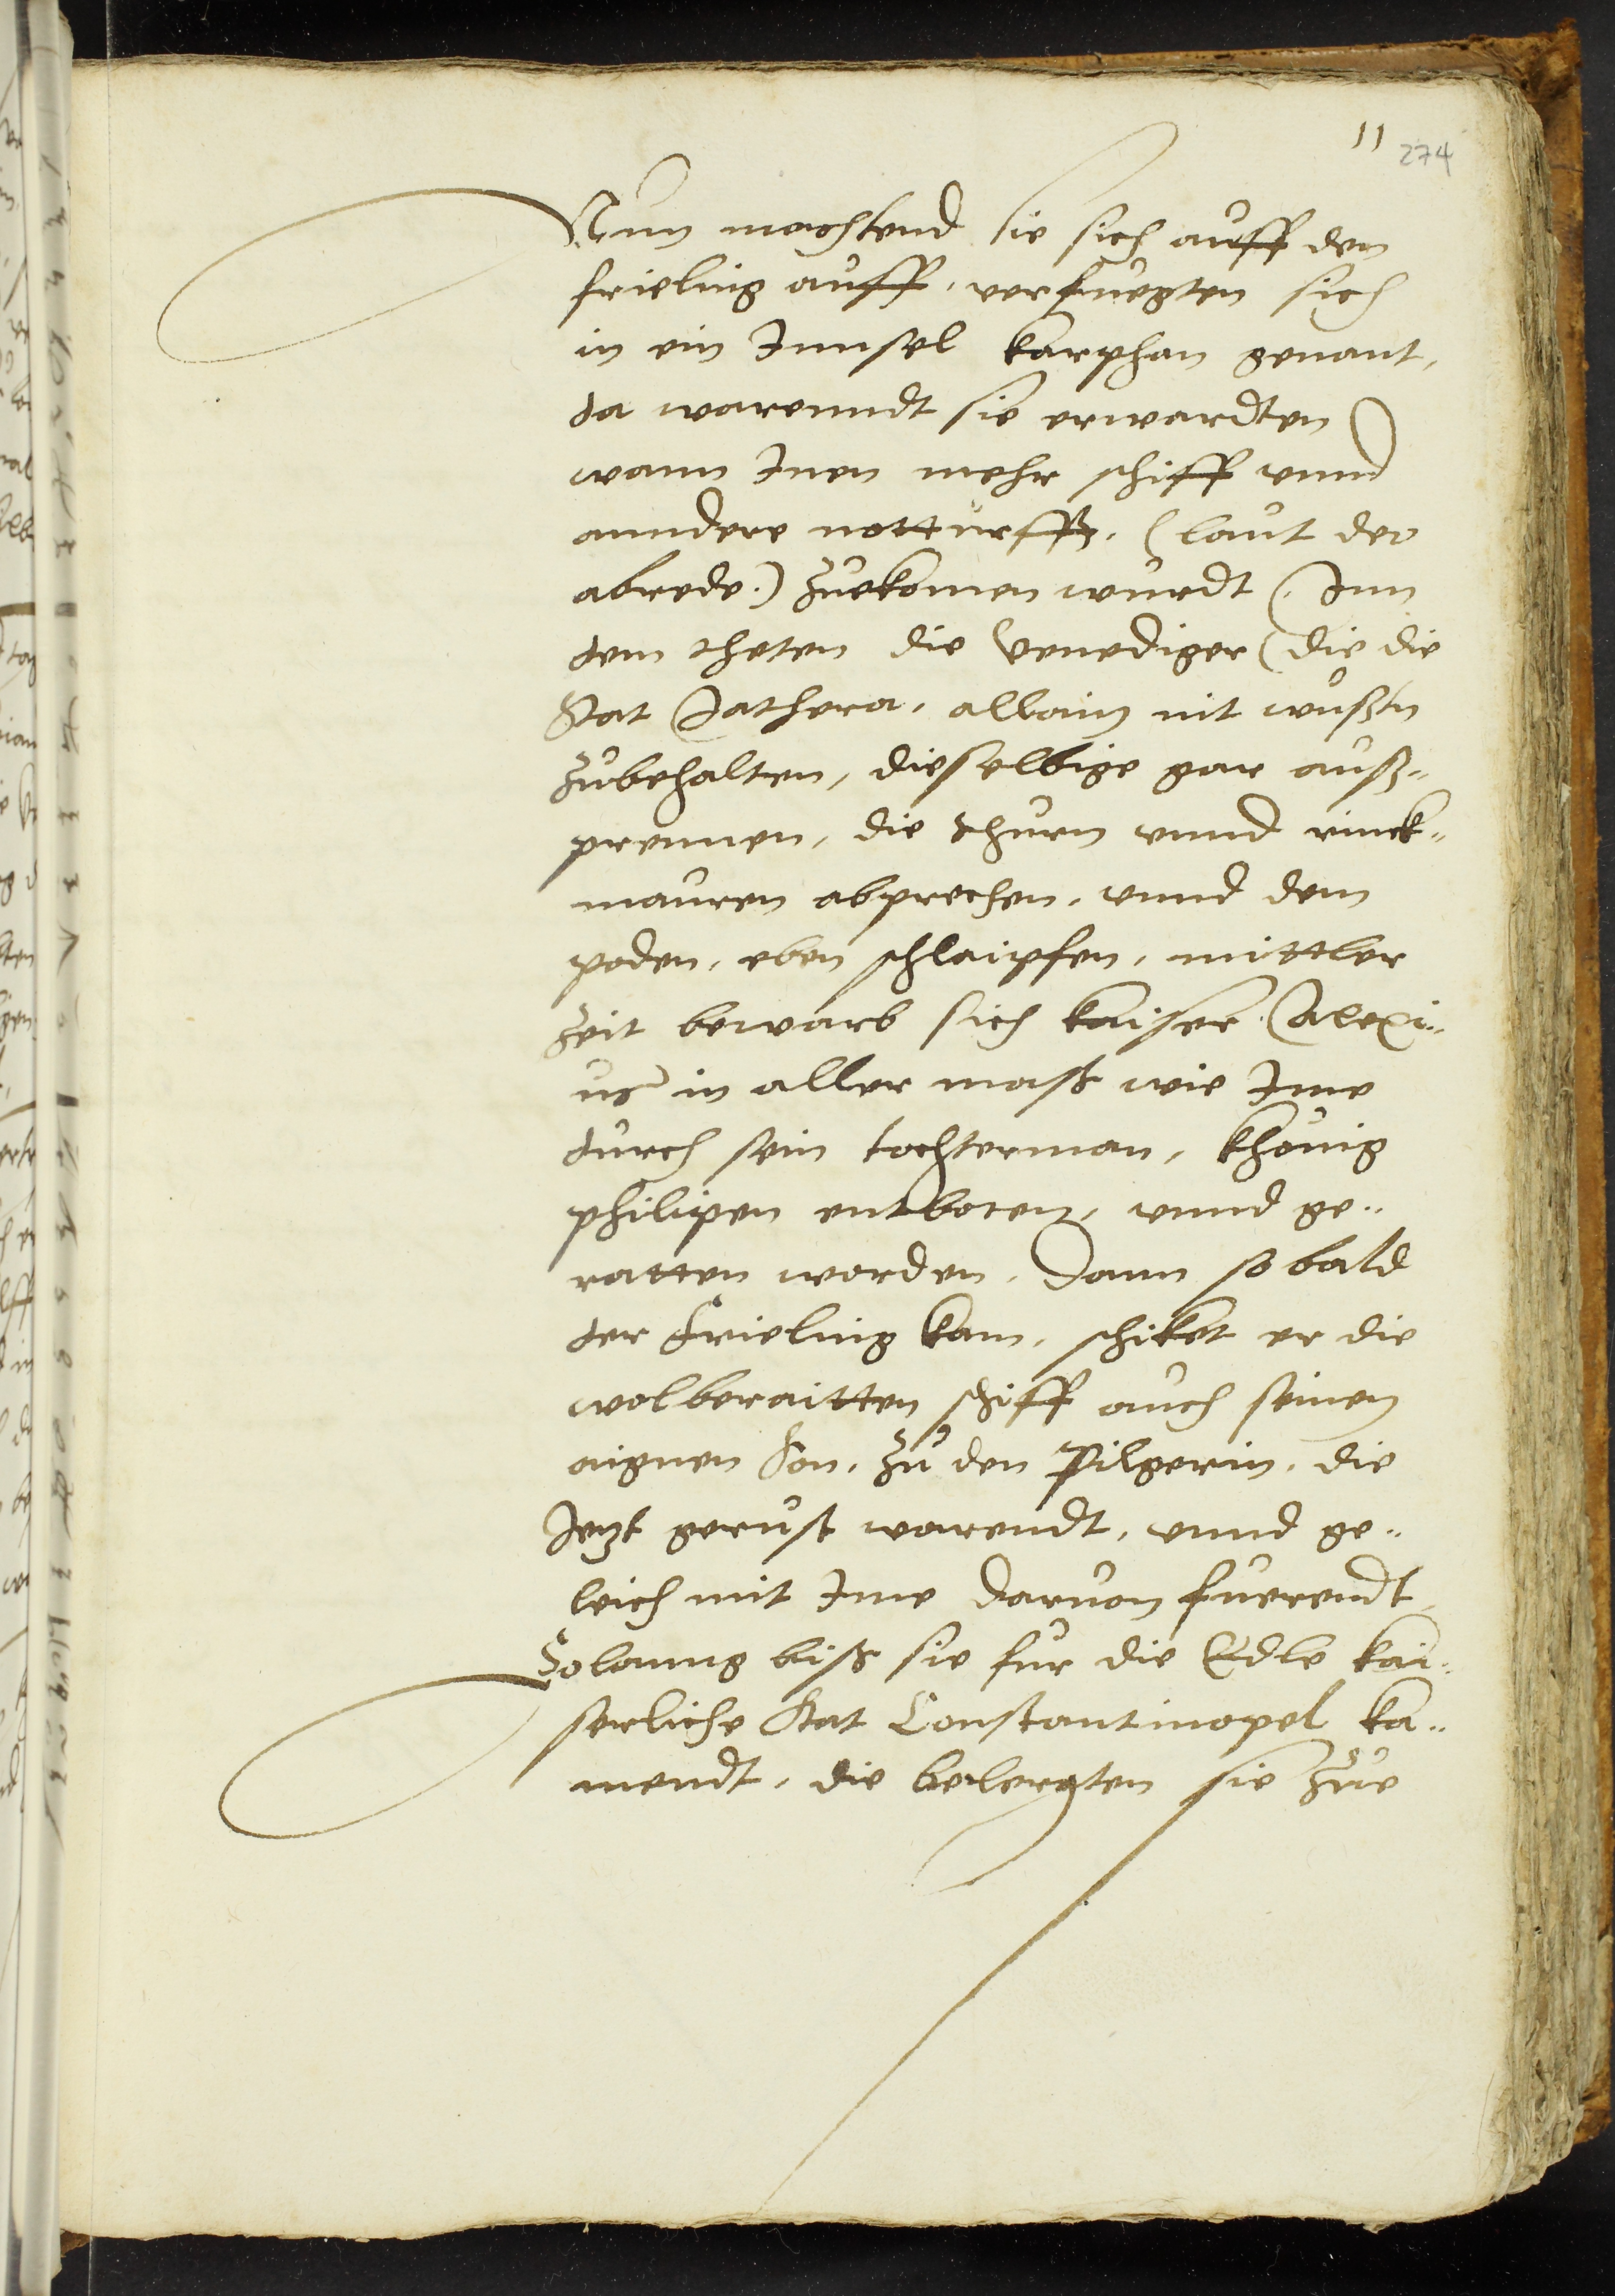 11 274
Nun machtend sie sich auff den
frieling auff, verfuegten sich
in ein Innsel karphan genant,
da warenndt sie erwardten
wann Inen mehr schiff vnnd
anndere notturfft, (laut der
abrede.) zuekomen wurdt, Inn
dem theten die Venediger (die die
Stat Jathera, allain nit wustn
zubehalten, dieselbige gar auß-
prennen, die thurn vnnd rinck-
mauren abprechen, vnnd dem
poden, eben schlaipfen, mittler
Zeit bewarb sich kaiser (Alexi-
us) in aller maß wie Ime
durch sein tochterman, khönig
philipen entboten, vnnd ge-
ratten worden, Dann so bald
der Frieling kam, schiket er die
wolberaitten schiff auch seinen
aignen Son, zu den Pilgerin, die
Jetzt gerust warendt, vnnd ge-
leich mit Ime daruon fuerendt,
Solanng biß sie fur die Edle kai-
serliche Stat Constantinopel ka-
mendt, die belegrten sie zue